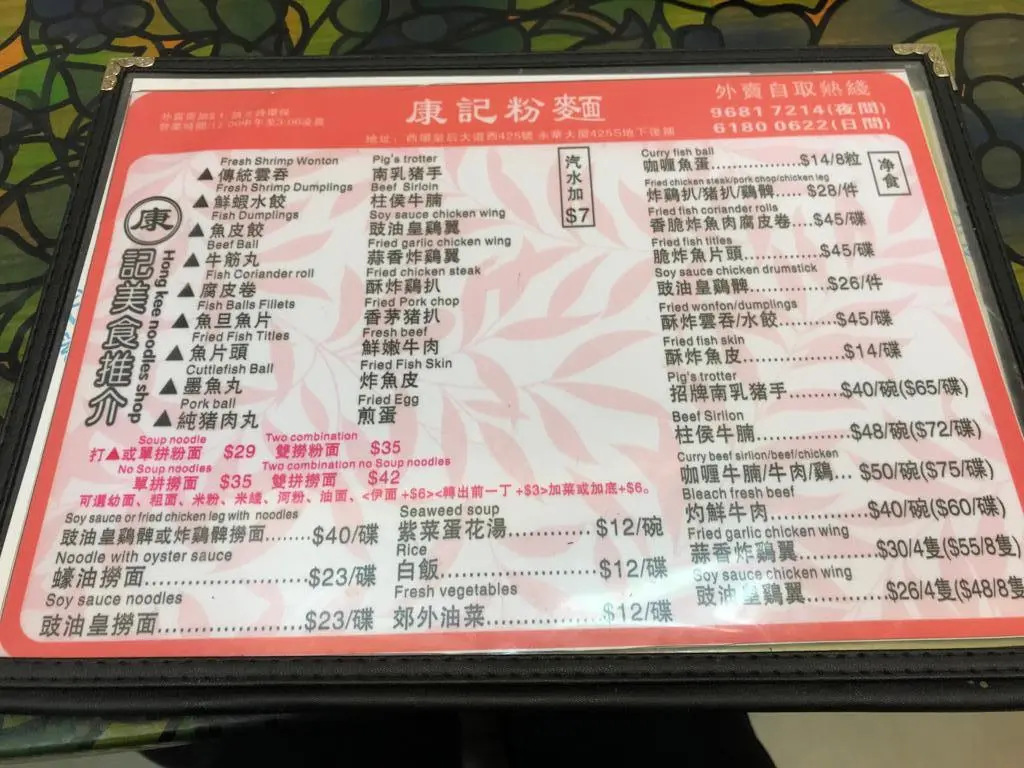 康記粉麵
外賣自取熱綫
9681 7214(夜間)
6180 0622(日間)
地址：西環皇后大道西425號
康
記美食推介
Hong kee noodles shop
Fresh Shrimp Wonton
▲傳統雲吞
Fresh Shrimp Dumplings
▲鮮蝦水餃
Fish Dumplings
▲魚皮餃
Beef Ball
▲牛筋丸
Fish Coriander roll
▲腐皮卷
Fish Balls Fillets
▲魚旦魚片
Fried Fish Titles
▲魚片頭
Cuttlefish Ball
▲墨魚丸
Pork ball
▲純猪肉丸
Pig's trotter
南乳猪手
Beef Sirloin
柱侯牛腩
Soy sauce chicken wing
豉油皇鷄翼
Fried garlic chicken wing
蒜香炸鷄翼
Fried chicken steak
酥炸鷄扒
Fried Pork chop
香茅猪扒
Fresh beef
鮮嫩牛肉
Fried Fish Skin
炸魚皮
Fried Egg
煎蛋
汽水加$7
Soup noodle Two combination
打▲或單拼粉面 $29 雙撈粉面 $35
No Soup noodles Two combination no Soup noodles
單拼撈面 $35 雙拼撈面 $42
可選幼面、粗面、米粉、米綫、河粉、油面、<伊面+$6><轉出前一丁+$3>加菜或加底+$6。
Soy sauce or fried chicken leg with noodles
豉油皇鷄髀或炸鷄髀撈面........$40/碟
Noodle with oyster sauce
蠔油撈面........................$23/碟
Soy sauce noodles
豉油皇撈面.....................$23/碟
Seaweed soup
紫菜蛋花湯............$12/碗
Rice
白飯.......................$12/碟
Fresh vegetables
郊外油菜................$12/碟
净食
Curry fish ball
咖喱魚蛋.................$14/8粒
Fried chicken steak/pork chop/chicken leg
炸鷄扒/猪扒/鷄髀..... $28/件
Fried fish coriander rolls
香脆炸魚肉腐皮卷....$45/碟
Fried fish titles
脆炸魚片頭..............$45/碟
Soy sauce chicken drumstick
豉油皇鷄髀..............$26/件
Fried wonfon/dumplings
酥炸雲吞/水餃..........$45/碟
Fried fish skin
酥炸魚皮..................$14/碟
Pig's trotter
招牌南乳猪手.........$40/碗($65/碟)
Beef Sirlion
柱侯牛腩...............$48/碗($72/碟)
Curry beef sirlion/beef/chicken
咖喱牛腩/牛肉/鷄... $50/碗($75/碟)
Bleach fresh beef
灼鮮牛肉................$40/碗($60/碟)
Fried garlic chicken wing
蒜香炸鷄翼.............$30/4隻($55/8隻)
Soy sauce chicken wing
豉油皇鷄翼.............$26/4隻($48/8隻